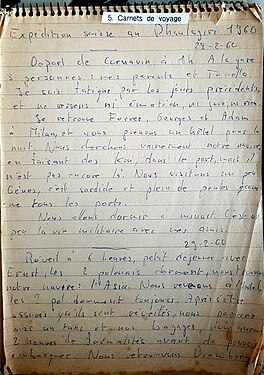 5. Carnets de voyage
Expédition suisse au Dhaulagiri 1960
28-2-60
Départ de Cornavin à 1h A la gare
3 personnes : mes parents et
Je suis fatigué par les jours précédents,
et ne ressens ni émotion, ni
Je retrouve Furrer, Georges et Adam
à Milan, et nous prenons un hôtel pour la
nuit. Nous cherchons vainement notre navire,
en faisant des km, dans le port, mais il
n'est pas encore là. Nous visitons un peu
Gênes, c'est sordide et plein de
tous les ports.
Nous allons dormir à minuit. C'est un
peu la vie militaire avec mes amis.
29-2-60
Réveil à 6 heures, petit déjeuner avec
Ernst, les 2 polonais dorment, nous
notre navire : l'Asia. Nous
les 2 pol. dorment toujours. Après s'être
assurés qu'ils sont réveillés, nous
avec un taxi et nos bagages,
2 heures de formalités avant de pouvoir
embarquer. Nous retrouvons